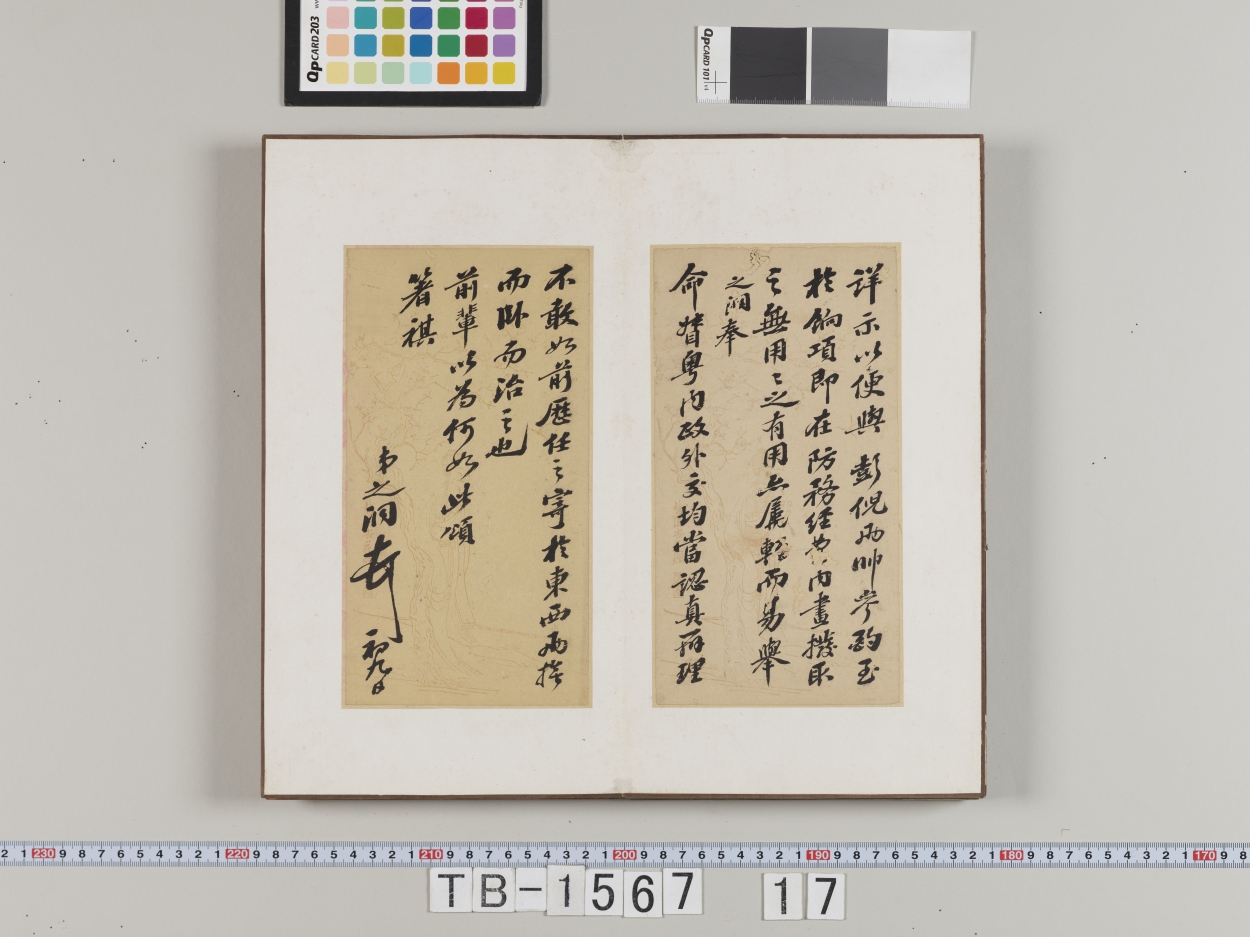 詳示以便與彭倪兩帥㕘酌至
於餉項即在防務經費內畫撥取
之無用之之有用亦屬輕而易舉
之洞奉
命督粵內政外交均當認真辦理
不敢如前歷任之寄於東西兩援
而臥而治之也
前輩以為何如此頌
箸祺
弟之洞頓
初九日
QPCARD 203
QPCARD 101 v4
2 1 230 9 8 7 6 5 4 3 2 1 220 9 8 7 6 5 4 3 2 1 210 9 8 7 6 5 4 3 2 1 200 9 8 7 6 5 4 3 2 1 190 9 8 7 6 5 4 3 2 1 180 9 8 7 6 5 4 3 2 1 170 9 8
TB-1567 17